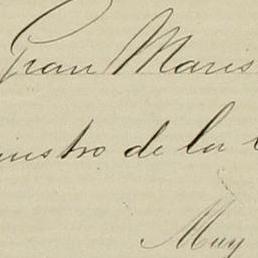 Gran Maris
nistro de la
Muy